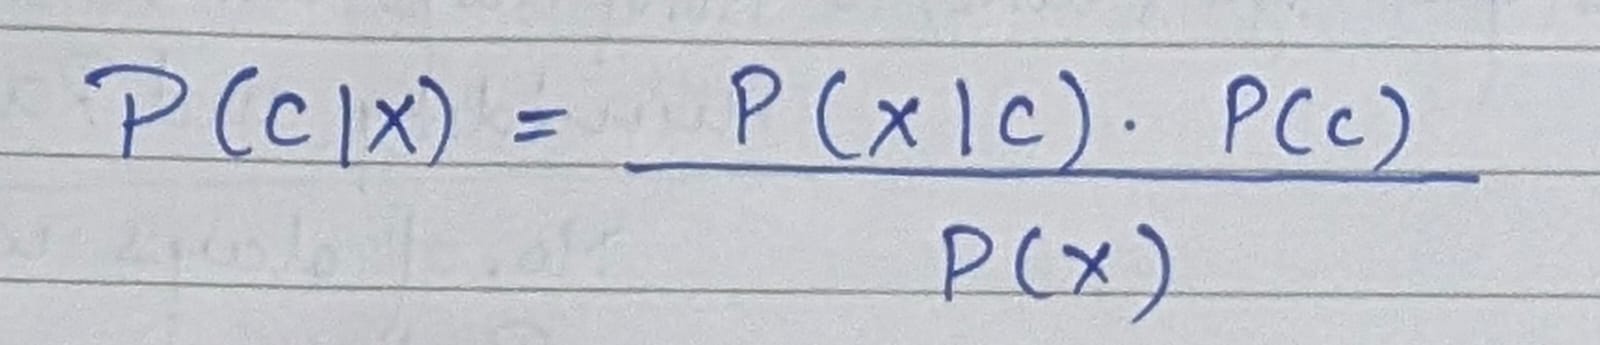 P(c|x) = P(x|c) · P(c)
P(x)